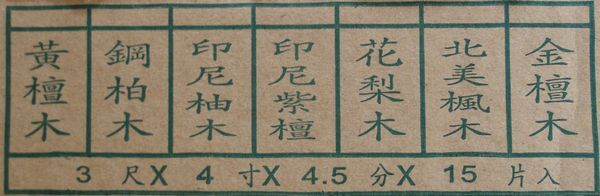 黃檀木
鋼柏木
印尼柚木
印尼紫檀
花梨木
北美楓木
金檀木
3 尺X 4 寸X 4.5 分X 15 片入